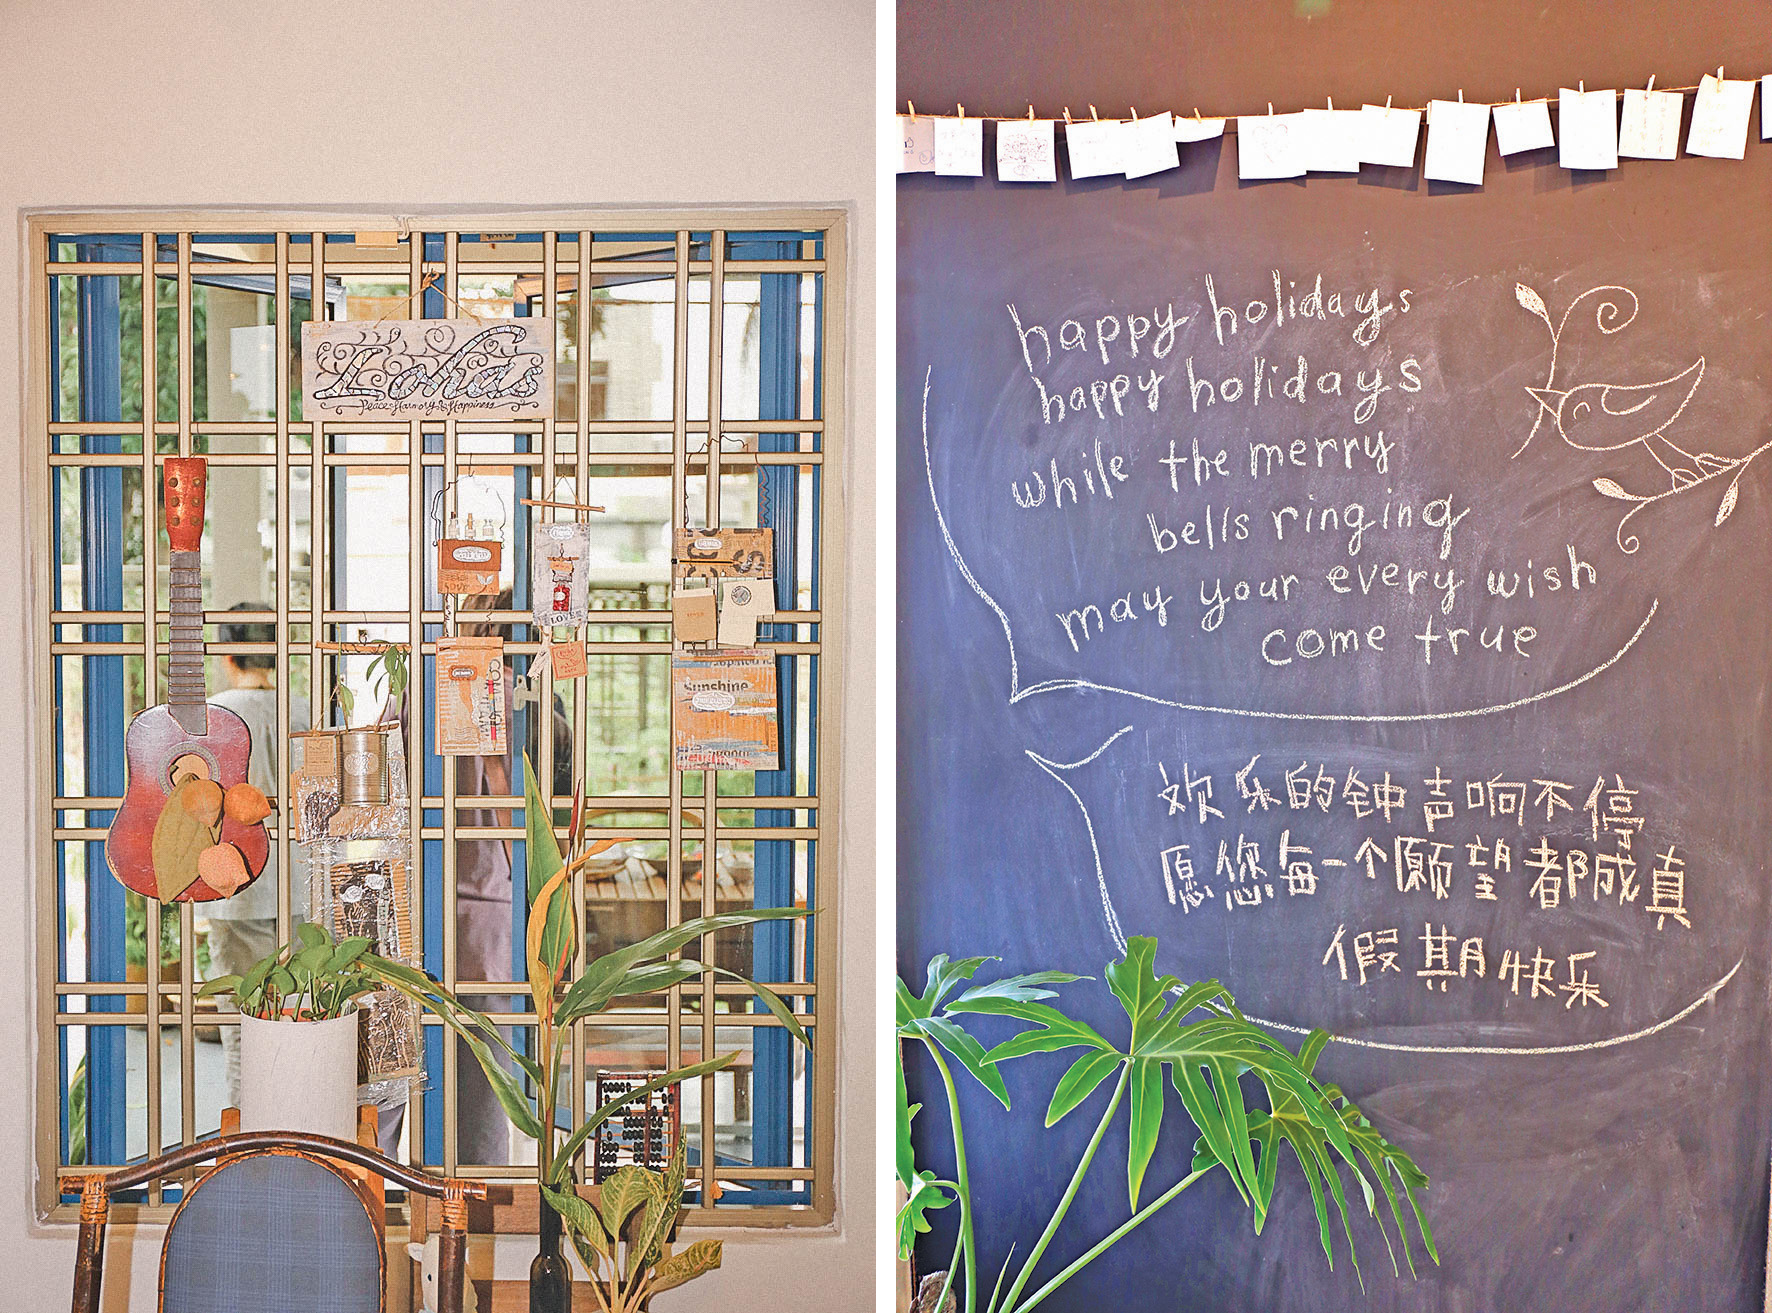 Lohas
Peace Harmony & Happiness
LOVE
Sunshine
happy holidays
happy holidays
while the merry
bells ringing
may your every wish
come true
欢乐的钟声响不停
愿您每一个愿望都成真
假期快乐